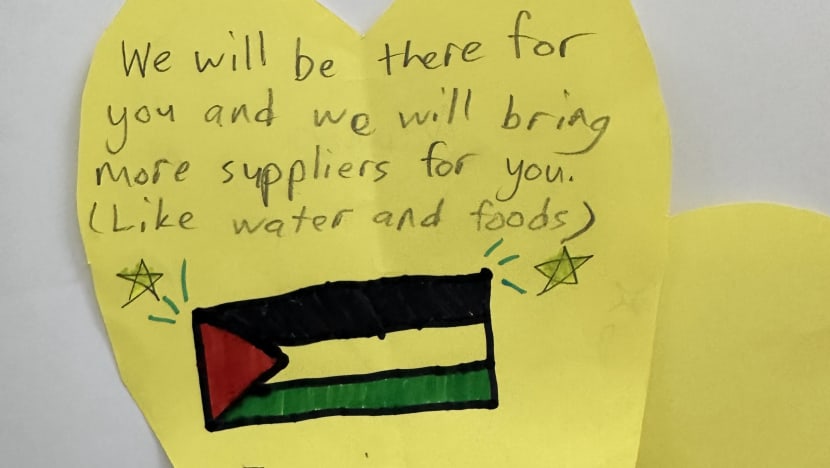 We will be there for
you and we will bring
more suppliers for you.
(Like water and foods)